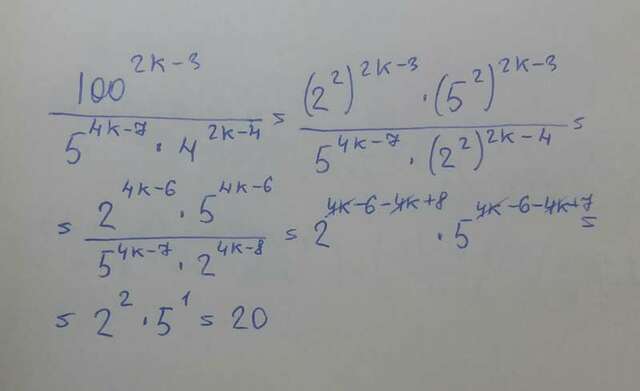 100^(2k-3) / (5^(4k-7) · 4^(2k-4)) = ((2^2)^(2k-3) · (5^2)^(2k-3)) / (5^(4k-7) · (2^2)^(2k-4)) =
= (2^(4k-6) · 5^(4k-6)) / (5^(4k-7) · 2^(4k-8)) = 2^(4k-6-4k+8) · 5^(4k-6-4k+7) =
= 2^2 · 5^1 = 20